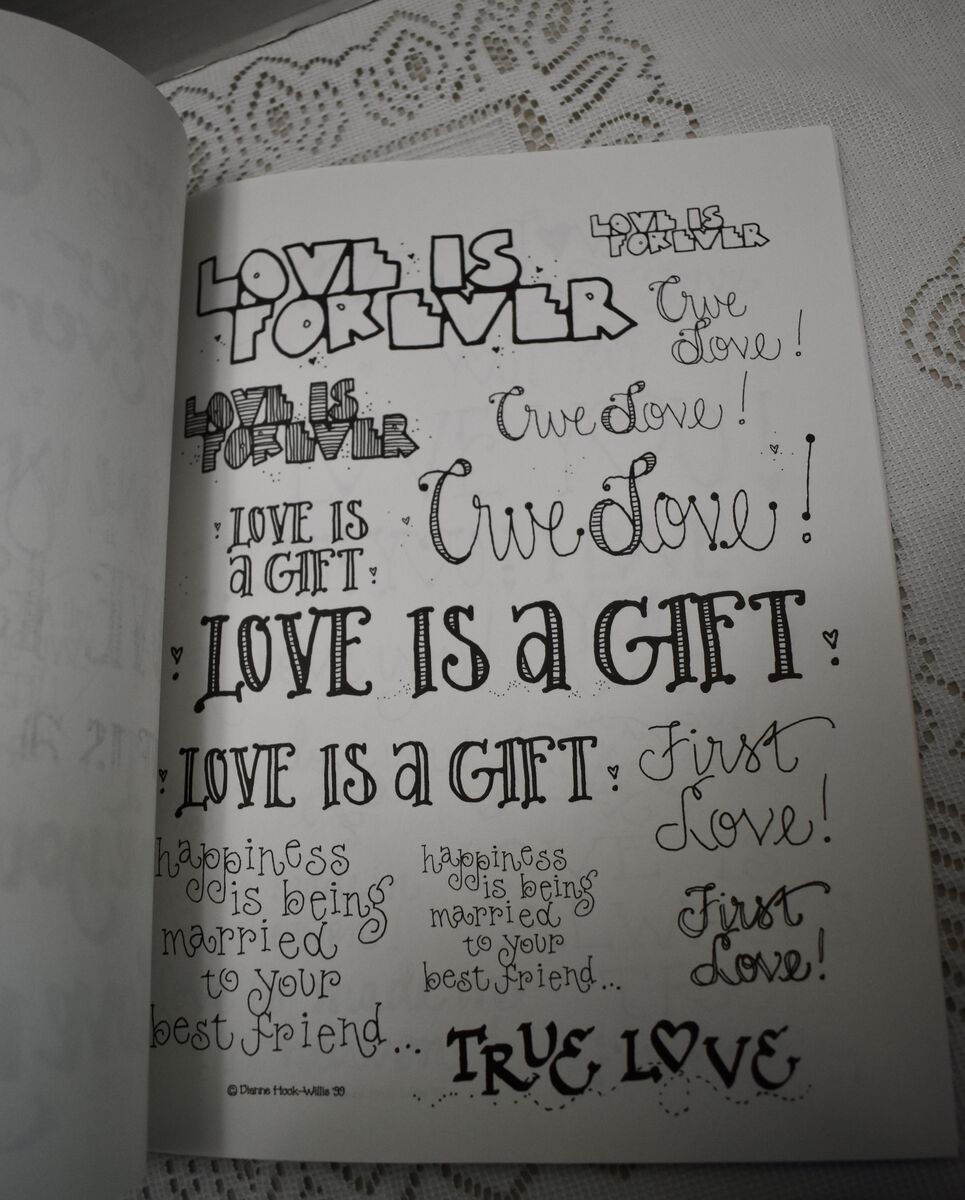 LOVE IS
FOREVER
LOVE IS
FOREVER
True
Love!
LOVE IS
FOREVER
True Love!
True Love!
LOVE IS
a GIFT
LOVE IS a GIFT
LOVE IS a GIFT
First
Love!
happiness
is being
married
to your
best friend...
happiness
is being
married
to your
best friend...
First
Love!
TRUE LOVE
© Dianne Hook-Willis '99